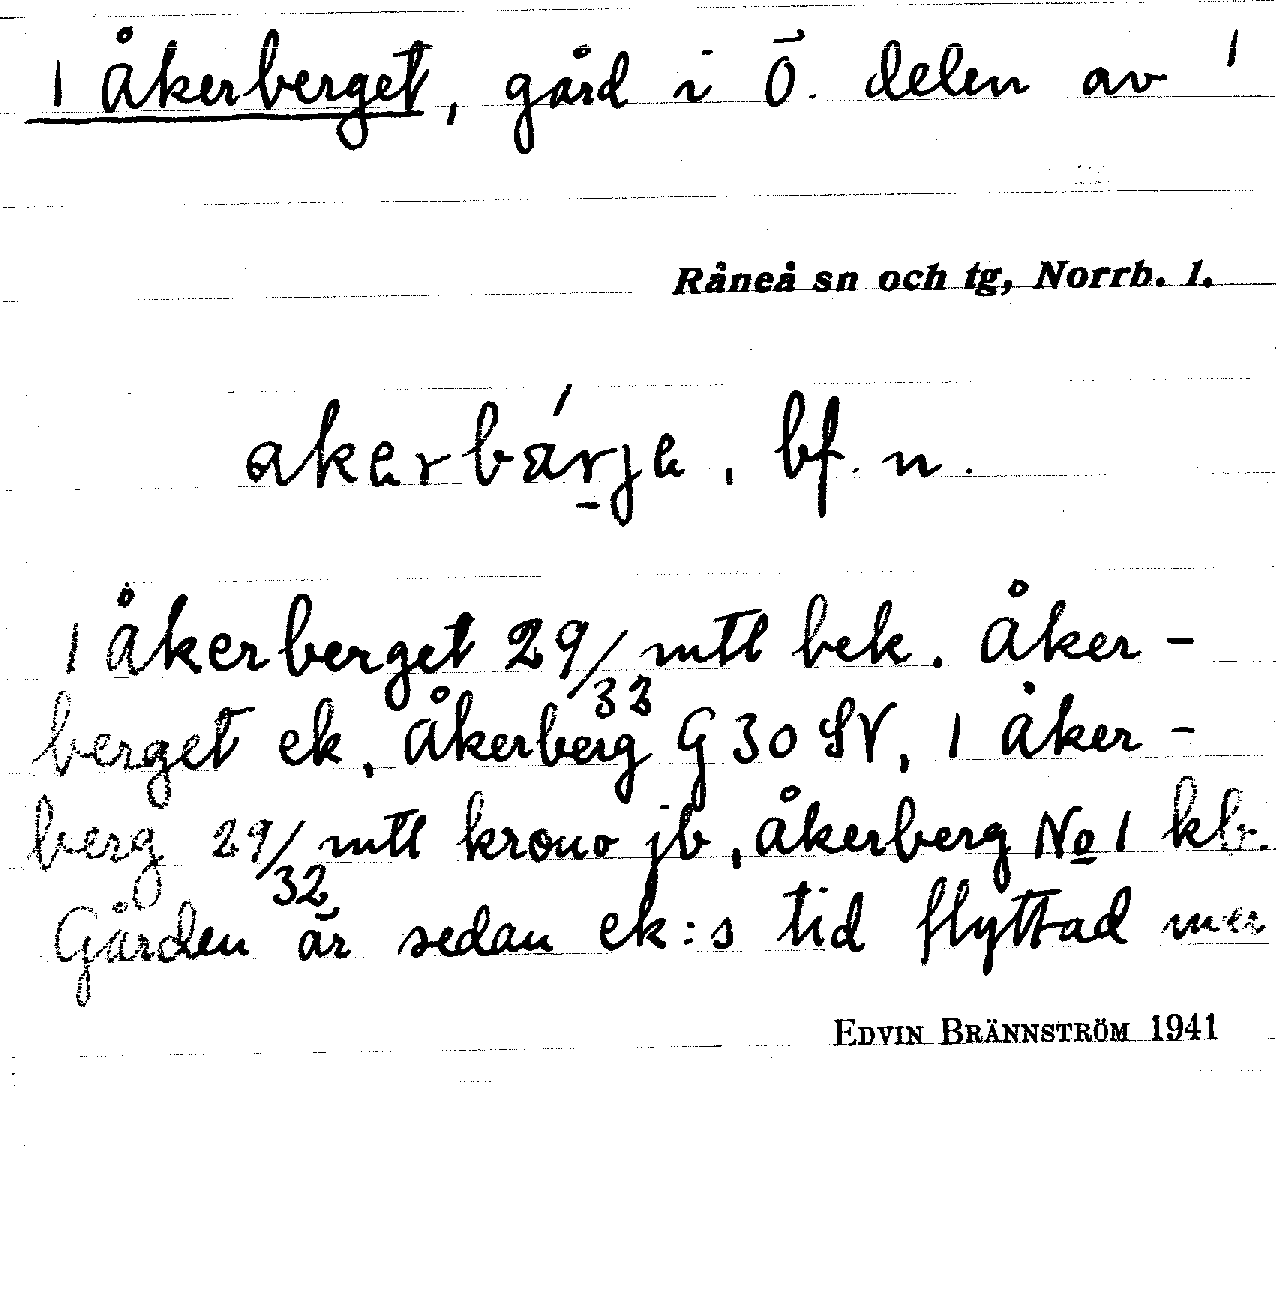 1 Åkerberget, gård i Ö. delen av 1
Råneå sn och tg, Norrb. l.
akerbárje, bf. n.
1 Åkerberget 29/32 mtl bek. Åker-
berget ek, Åkerberg G 30 SV, 1 Åker-
berg 29/32 mtl krono jb, Åkerberg No 1 kb.
Gården är sedan ek:s tid flyttad mer
EDVIN BRÄNNSTRÖM 1941